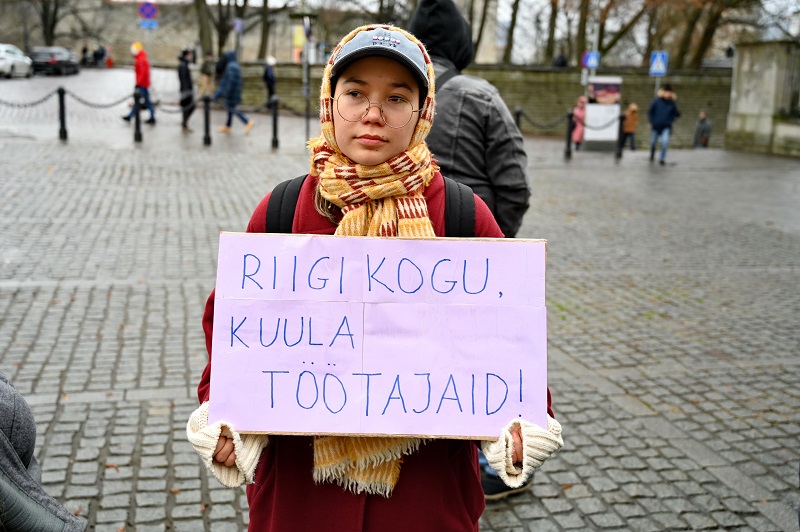 RIIGIKOGU,
KUULA
TÖÖTAJAID!